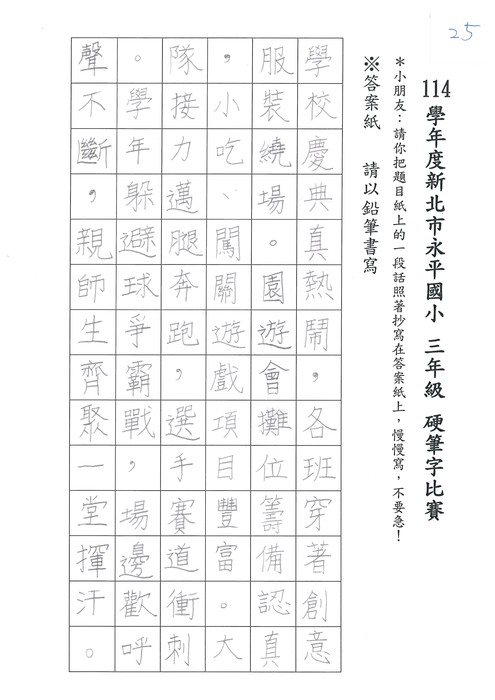 25
114學年度新北市永平國小 三年級 硬筆字比賽
＊小朋友：請你把題目紙上的一段話照著抄寫在答案紙上，慢慢寫，不要急！
※答案紙 請以鉛筆書寫
學校慶典真熱鬧，各班穿著創意
服裝繞場。園遊會攤位籌備認真
，小吃、闖關遊戲項目豐富。大
隊接力邁腿奔跑，選手賽道衝刺
。學年躲避球爭霸戰，場邊歡呼
聲不斷，親師生齊聚一堂揮汗。